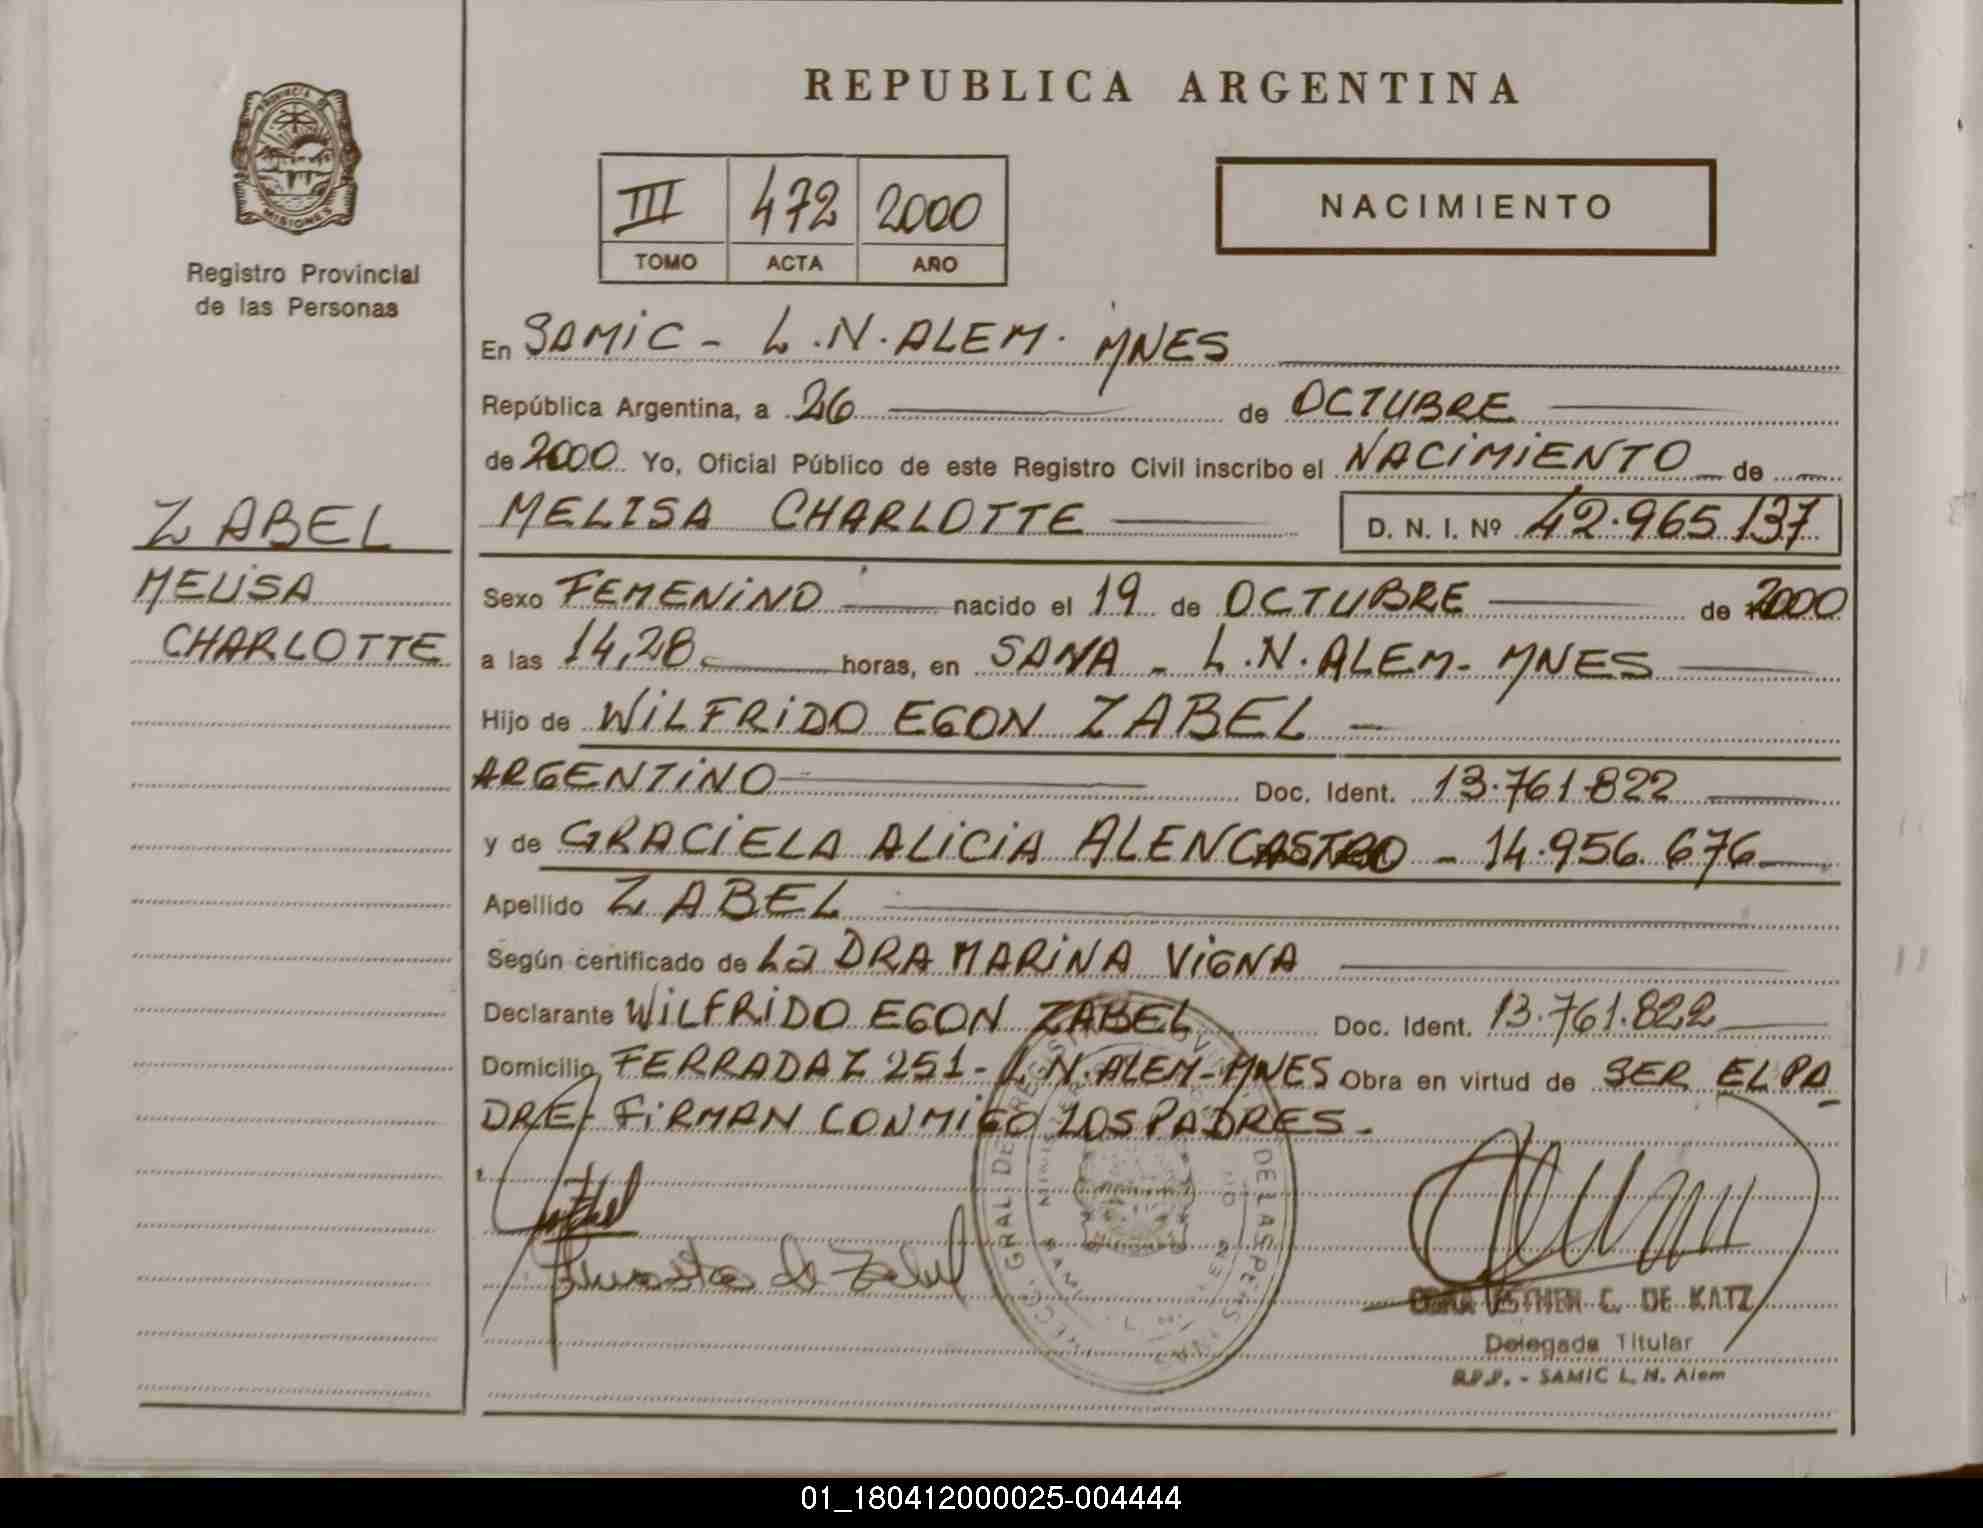 REPUBLICA ARGENTINA
PROVINCIA DE
MISIONES
Registro Provincial
de las Personas
III 472 2000
TOMO ACTA AÑO
NACIMIENTO
En SAMIC - L.N. ALEM. MNES
República Argentina, a 26 de OCTUBRE
de 2000 Yo, Oficial Público de este Registro Civil inscribo el NACIMIENTO de
MELISA CHARLOTTE D. N. I. Nº 42.965.137
ZABEL
MELISA
CHARLOTTE
Sexo FEMENINO nacido el 19 de OCTUBRE de 2000
a las 14,28 horas, en SAMA - L.N. ALEM - MNES
Hijo de WILFRIDO EGON ZABEL -
ARGENTINO Doc. Ident. 13.761.822
y de GRACIELA ALICIA ALENCASTRO - 14.956.676
Apellido ZABEL
Según certificado de La DRA MARINA VIGNA
Declarante WILFRIDO EGON ZABEL Doc. Ident. 13.761.822
Domicilio FERRADAZ 251 - L.N. ALEM - MNES Obra en virtud de SER EL PA
DRE - FIRMAN CONMIGO LOS PADRES -
de Zabel
ESTHER C. DE KATZ
Delegada Titular
R.P.P. - SAMIC L. N. Alem
01_180412000025-004444